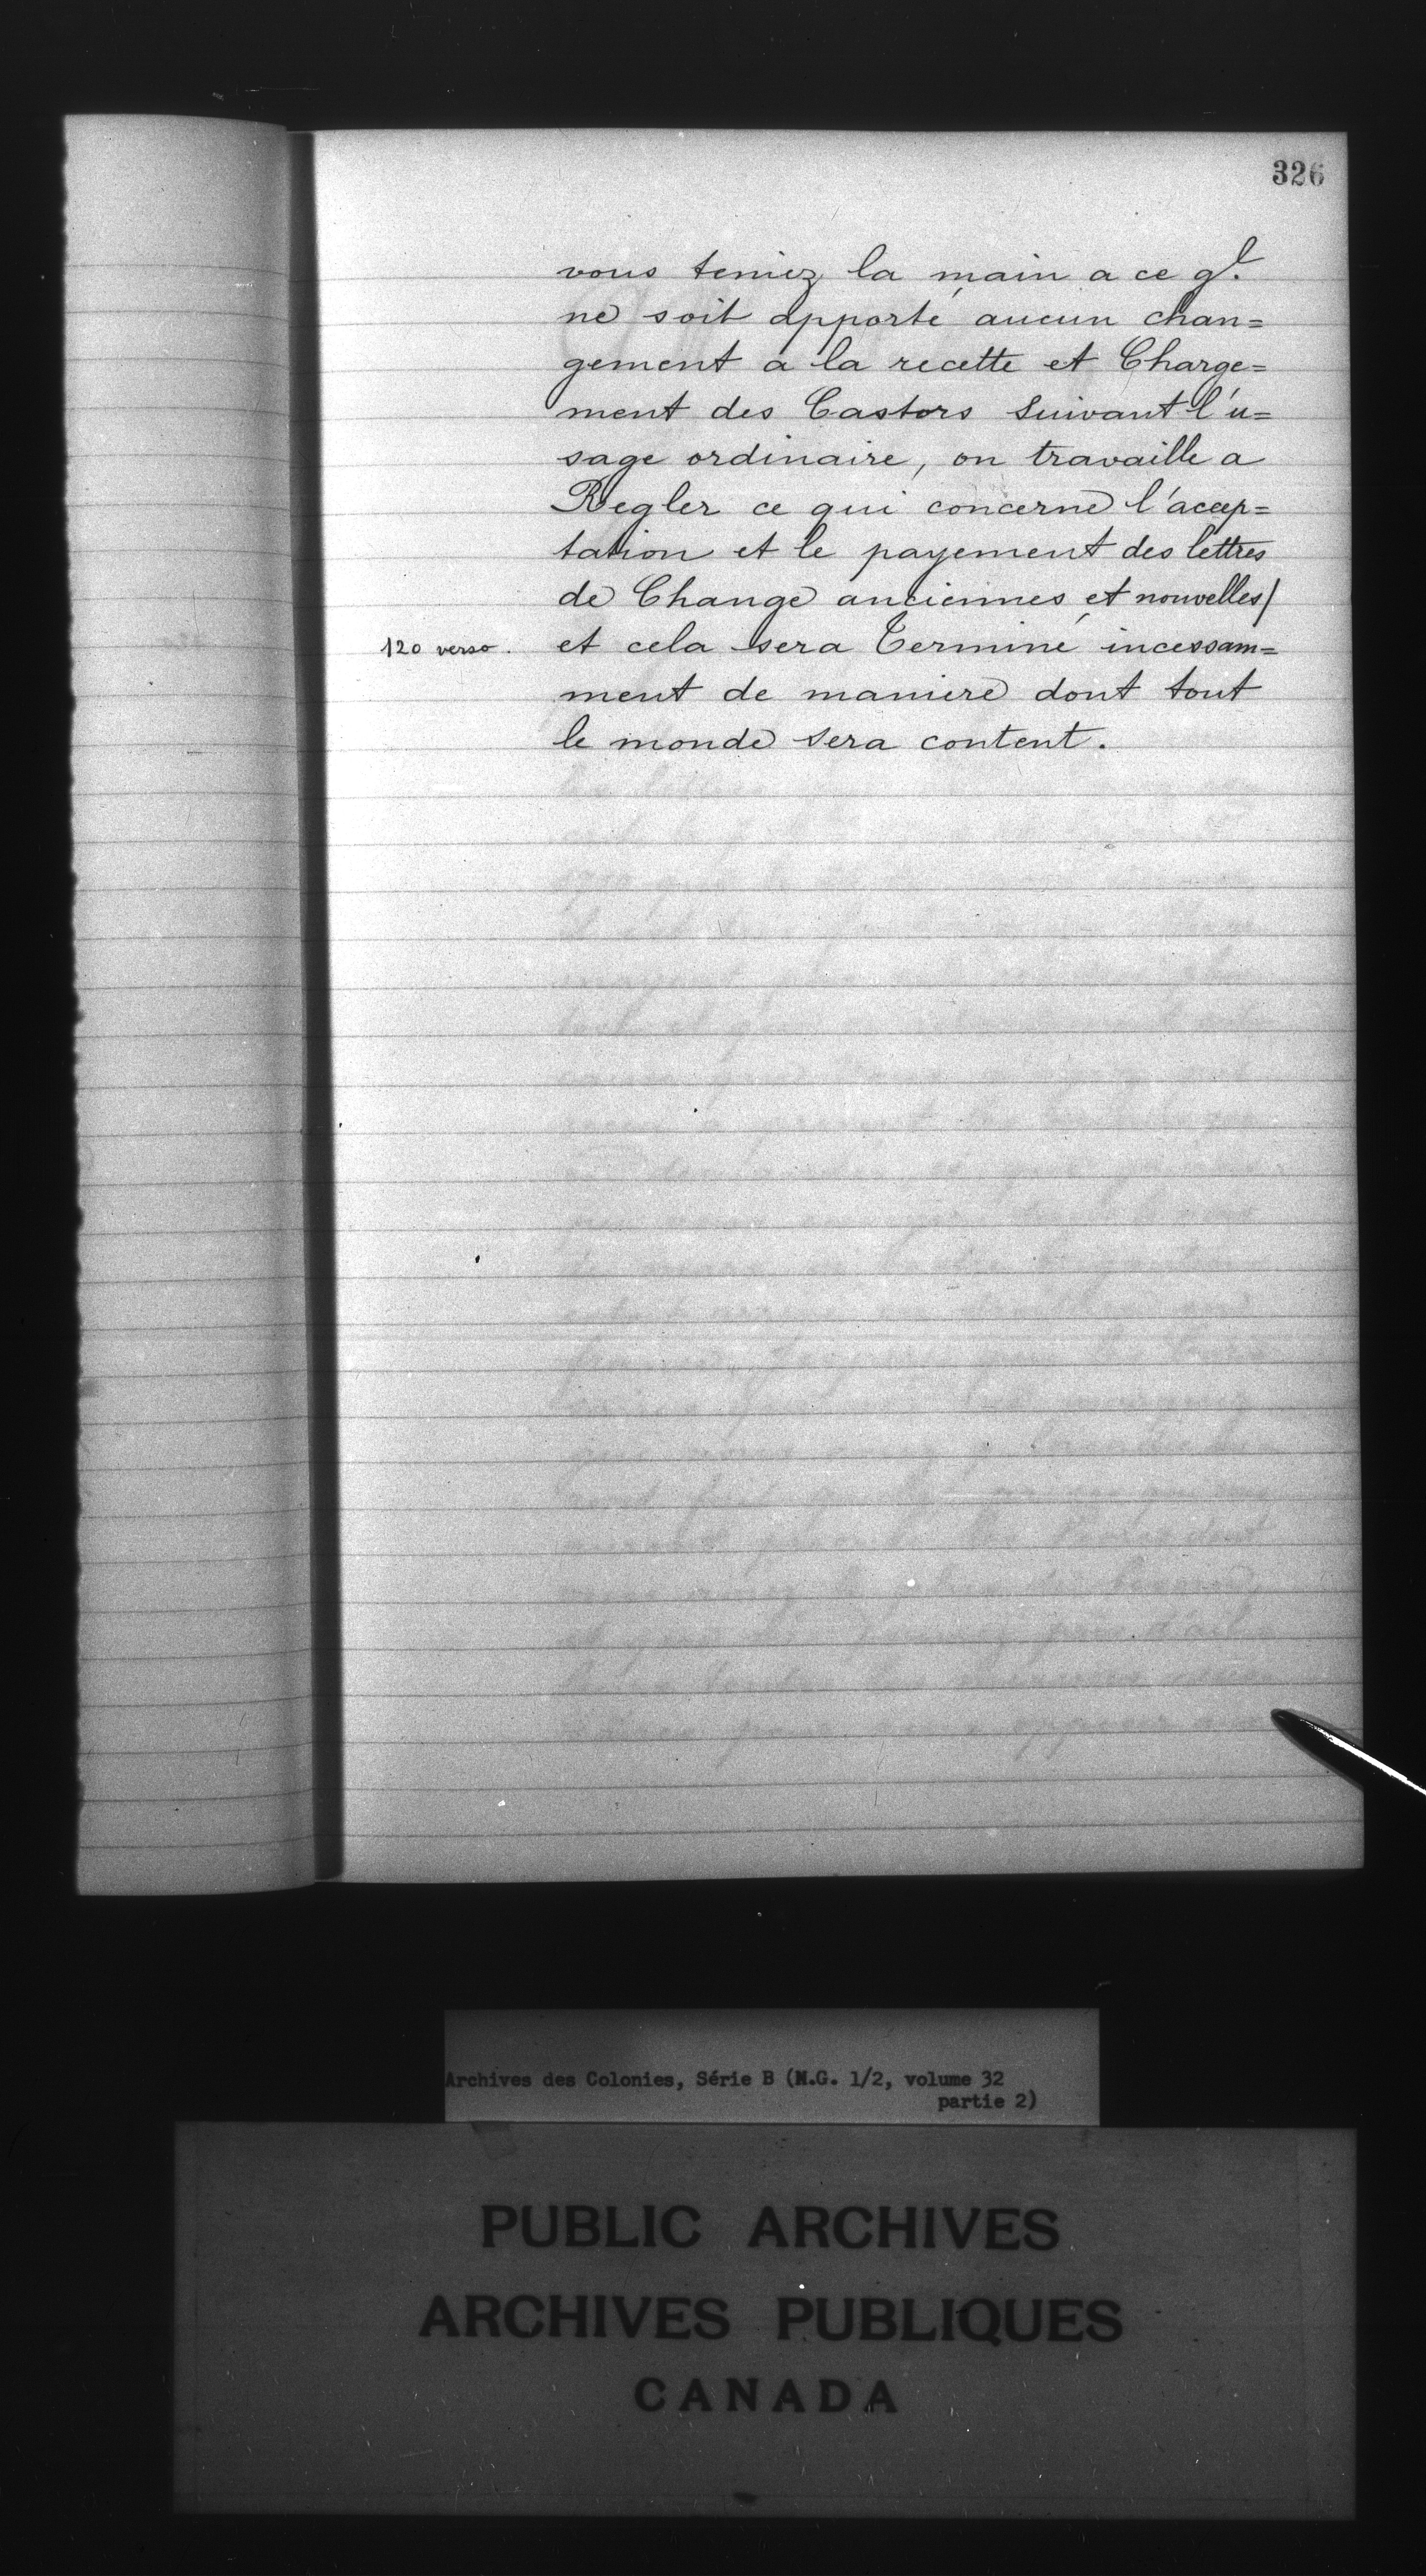 326
vous teniez la main a ce ql.
ne soit apporté aucun chan=
gement a la recette et Charge=
ment des Castors Suivant l'u=
sage ordinaire, on travaille a
Regler ce qui concerne l'accep=
tation et le payement des lettres
de Change anciennes et nouvelles/
120 verso. et cela sera Terminé incessam=
ment de maniere dont tout
le monde sera content.
Archives des Colonies, Série B (N.G. 1/2, volume 32
partie 2)
PUBLIC ARCHIVES
ARCHIVES PUBLIQUES
CANADA